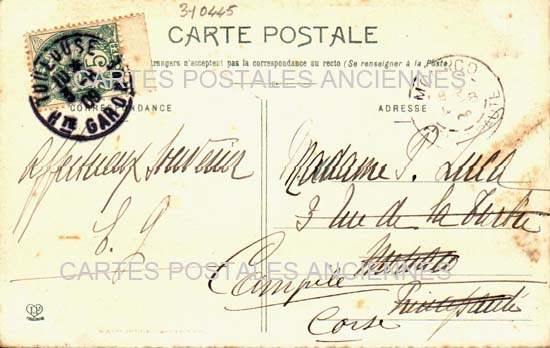 3-10445
CARTE POSTALE
étrangers n'acceptent pas la correspondance au recto (Se renseigner à la Poste)
CARTES POSTALES ANCIENNES
CORRESPONDANCE
ADRESSE
TOULOUSE
Hte GARONNE
5
MONACO
Affectueux souvenir
Madame P. Luca
3 rue de la Turbie
Monaco
Principauté
Campile
Corse
CARTES POSTALES ANCIENNES